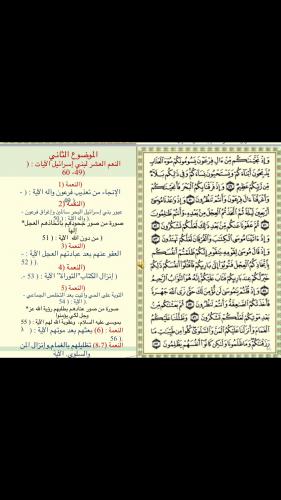 وَإِذْ نَجَّيْنَٰكُم مِّنْ ءَالِ فِرْعَوْنَ يَسُومُونَكُمْ سُوٓءَ ٱلْعَذَابِ
يُذَبِّحُونَ أَبْنَآءَكُمْ وَيَسْتَحْيُونَ نِسَآءَكُمْ وَفِى ذَٰلِكُم بَلَآءٌ
مِّن رَّبِّكُمْ عَظِيمٌ ۝٤٩ وَإِذْ فَرَقْنَا بِكُمُ ٱلْبَحْرَ فَأَنجَيْنَٰكُمْ
وَأَغْرَقْنَآ ءَالَ فِرْعَوْنَ وَأَنتُمْ تَنظُرُونَ ۝٥٠ وَإِذْ وَٰعَدْنَا مُوسَىٰٓ
أَرْبَعِينَ لَيْلَةً ثُمَّ ٱتَّخَذْتُمُ ٱلْعِجْلَ مِنۢ بَعْدِهِۦ وَأَنتُمْ ظَٰلِمُونَ ۝٥١
ثُمَّ عَفَوْنَا عَنكُم مِّنۢ بَعْدِ ذَٰلِكَ لَعَلَّكُمْ تَشْكُرُونَ ۝٥٢
وَإِذْ ءَاتَيْنَا مُوسَى ٱلْكِتَٰبَ وَٱلْفُرْقَانَ لَعَلَّكُمْ تَهْتَدُونَ ۝٥٣
وَإِذْ قَالَ مُوسَىٰ لِقَوْمِهِۦ يَٰقَوْمِ إِنَّكُمْ ظَلَمْتُمْ أَنفُسَكُم
بِٱتِّخَاذِكُمُ ٱلْعِجْلَ فَتُوبُوٓا۟ إِلَىٰ بَارِئِكُمْ فَٱقْتُلُوٓا۟ أَنفُسَكُمْ ذَٰلِكُمْ
خَيْرٌ لَّكُمْ عِندَ بَارِئِكُمْ فَتَابَ عَلَيْكُمْ إِنَّهُۥ هُوَ ٱلتَّوَّابُ ٱلرَّحِيمُ
۝٥٤ وَإِذْ قُلْتُمْ يَٰمُوسَىٰ لَن نُّؤْمِنَ لَكَ حَتَّىٰ نَرَى ٱللَّهَ جَهْرَةً
فَأَخَذَتْكُمُ ٱلصَّٰعِقَةُ وَأَنتُمْ تَنظُرُونَ ۝٥٥ ثُمَّ بَعَثْنَٰكُم مِّنۢ
بَعْدِ مَوْتِكُمْ لَعَلَّكُمْ تَشْكُرُونَ ۝٥٦ وَظَلَّلْنَا عَلَيْكُمُ
ٱلْغَمَامَ وَأَنزَلْنَا عَلَيْكُمُ ٱلْمَنَّ وَٱلسَّلْوَىٰ كُلُوا۟ مِن طَيِّبَٰتِ مَا
رَزَقْنَٰكُمْ وَمَا ظَلَمُونَا وَلَٰكِن كَانُوٓا۟ أَنفُسَهُمْ يَظْلِمُونَ ۝٥٧
الموضوع الثاني
النعم العشر لبني إسرائيل الآيات : (
49- 60)
(النعمة (1
الإنجاء من تعذيب فرعون وآله الآية : ( -
49 )
(النعمة (2
عبور بني إسرائيل البحر سالمين وإغراق فرعون -
وآله الآية : ( 50 )
صورة من صور جحودهم باتخاذهم العجل*
إلها
( من دون الله الآية : ( 51
(النعمة (3
العفو عنهم بعد عبادتهم العجل الآية : ( -
52 ) .
(النعمة (4
( إنزال الكتاب "التوراة" الآية : ( 53 -
(النعمة (5
التوبة على الحي والميت بعد التخلص الجماعي -
الآية : ( 54 ) .
صورة من صور عنادهم بطلبهم رؤية الله عز*
وجل لكي يؤمنوا
بموسى عليه السلام، وعقوبة الله لهم الآية : ( 55
).
النعمة : (6) بعثهم بعد موتهم الآية : (
56 ) .
النعمة : (8،7) تظليلهم بالغمام وإنزال المن
والسلوى، الآية